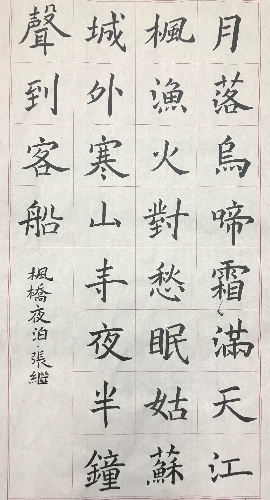 月落烏啼霜滿天江
楓漁火對愁眠姑蘇
城外寒山寺夜半鐘
聲到客船
楓橋夜泊張繼